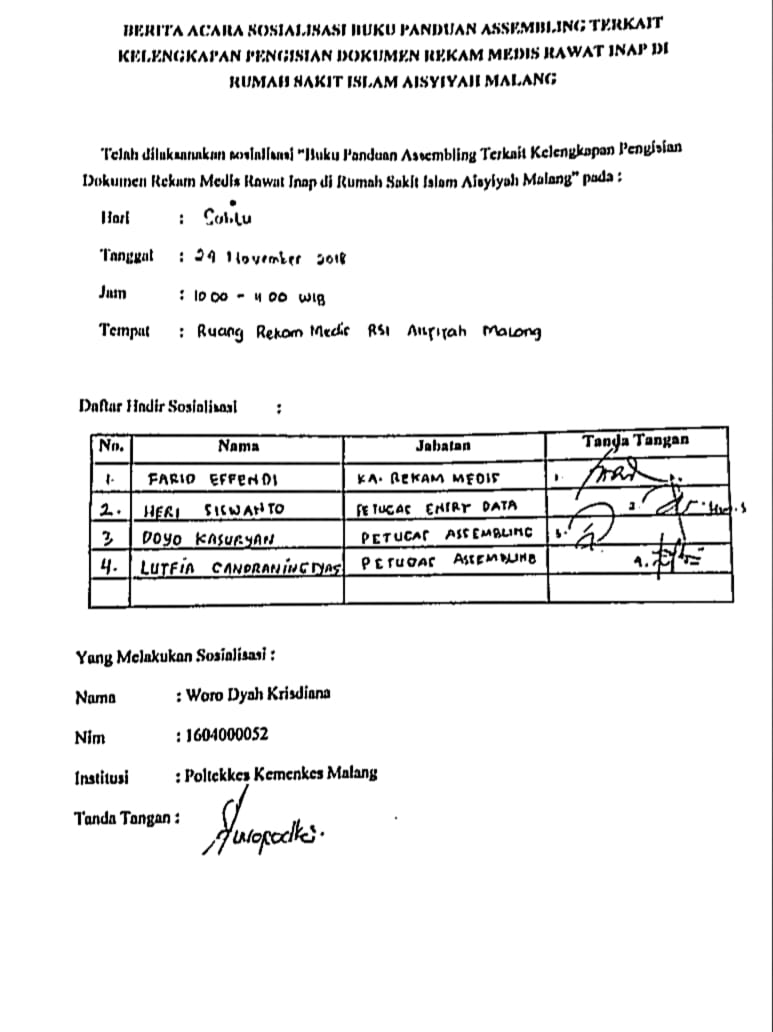 BERITA ACARA SOSIALISASI BUKU PANDUAN ASSEMBLING TERKAIT
KELENGKAPAN PENGISIAN DOKUMEN REKAM MEDIS RAWAT INAP DI
RUMAH SAKIT ISLAM AISYIYAH MALANG
Telah dilaksanakan sosialisasi "Buku Panduan Assembling Terkait Kelengkapan Pengisian
Dokumen Rekam Medis Rawat Inap di Rumah Sakit Islam Aisyiyah Malang" pada :
Hari : Sabtu
Tanggal : 24 November 2018
Jam : 10 00 - 11 00 WIB
Tempat : Ruang Rekam Medis RSI Aisyiyah Malang
Daftar Hadir Sosialisasi :
No. Nama Jabatan Tanda Tangan
1. FARID EFFENDI KA. REKAM MEDIS 1.
2. HERI SISWANTO PETUGAS ENTRY DATA 2.
3 DOYO KASURYAN PETUGAS ASSEMBLING 3.
4. LUTFIA CANDRANINGTYAS PETUGAS ASSEMBLING 4.
Yang Melakukan Sosialisasi :
Nama : Woro Dyah Krisdiana
Nim : 1604000052
Institusi : Poltekkes Kemenkes Malang
Tanda Tangan :